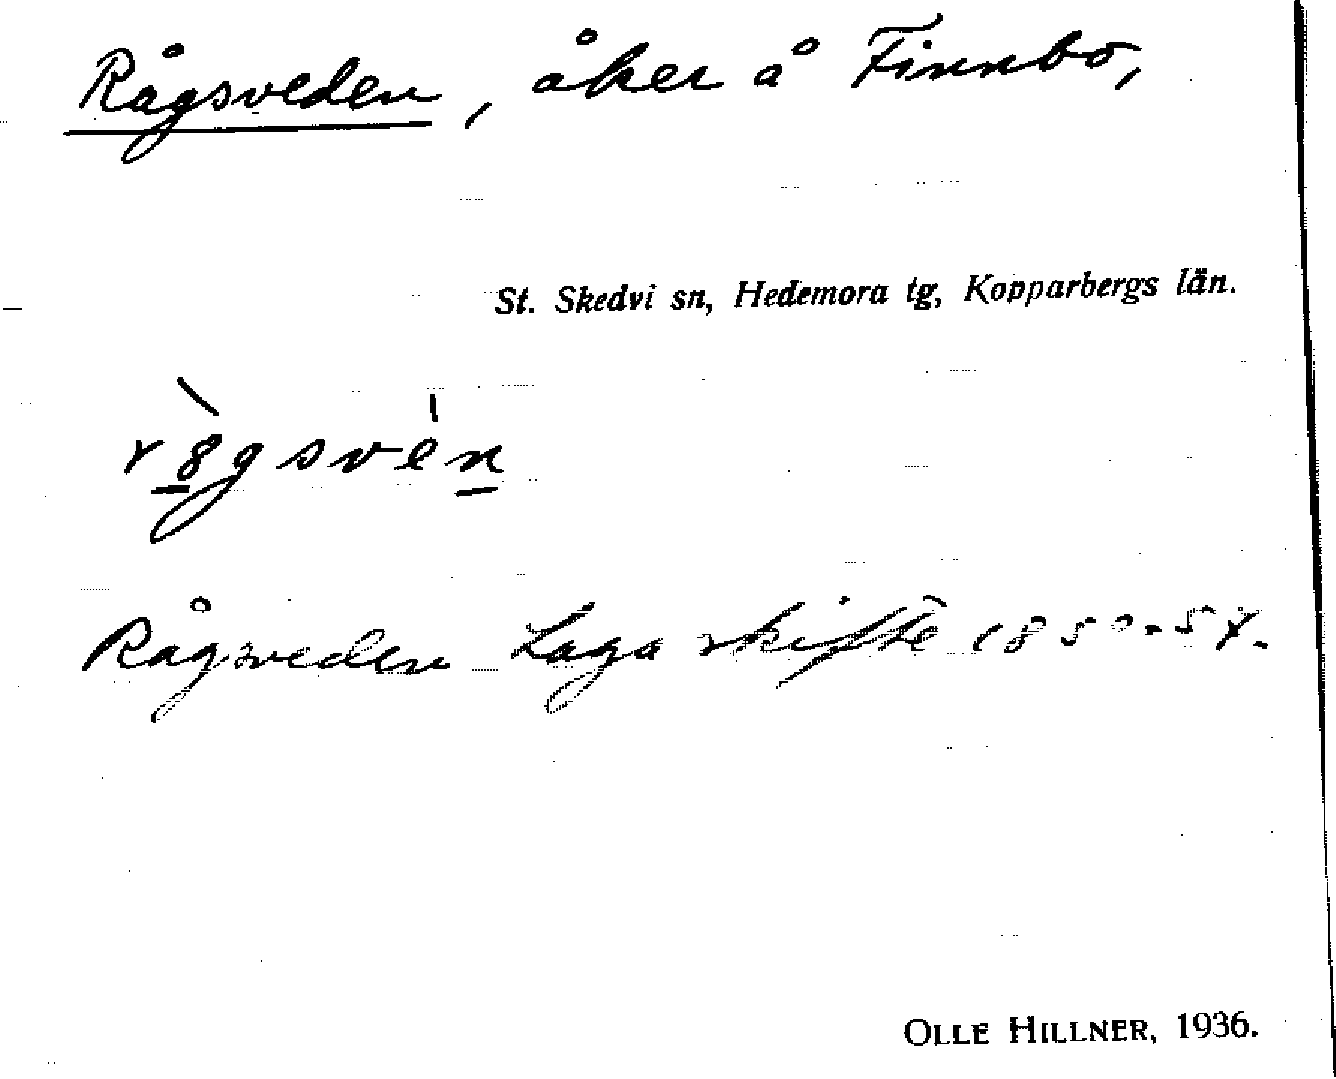 Rågsveden, åker å Finnbo,
St. Skedvi sn, Hedemora tg, Kopparbergs län.
Rågsveden Laga skifte 1850-57.
OLLE HILLNER, 1936.